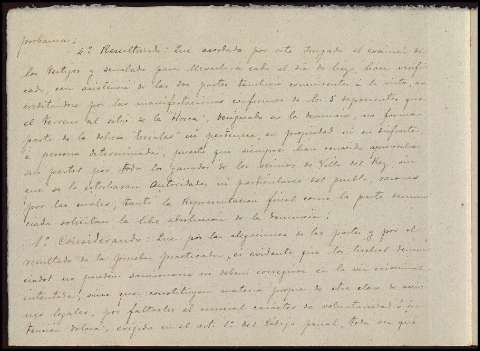 probanza;
4º Resultando: Que acordado por este Juzgado el examen de
los testigos y señalado para llevarlo a cabo el día de hoy, han verifi
cado, con asistencia de las dos partes
creditándose por las manifestaciones conformes de los 5 deponentes que
el terreno al sitio de la Horca, en la denuncia, no forma
parte de la dehesa ni pertenece, en propiedad ni en disfrute
á persona determinada, puesto que siempre han venido
sus pastos por todos los ganados de los vecinos de Villa del Rey, sin
que se lo estorbaran Autoridades, ni particulares del pueblo, razones
por las cuales, tanto la Representacion fiscal como la parte denun
ciada solicitan la libre absolucion de la denuncia;
1º Considerando: Que por las alegaciones de las partes y por el
resultado de las pruebas practicadas, es evidente que los hechos denun
ciados no pueden sancionarse ni deben corregirse en la via criminal
intentada, sino que constituyen materia propia de otra clase de
legales, por faltarles el esencial carácter de voluntariedad ó in
tencion dolosa, exigido en el art. 1º del Código penal, toda vez que